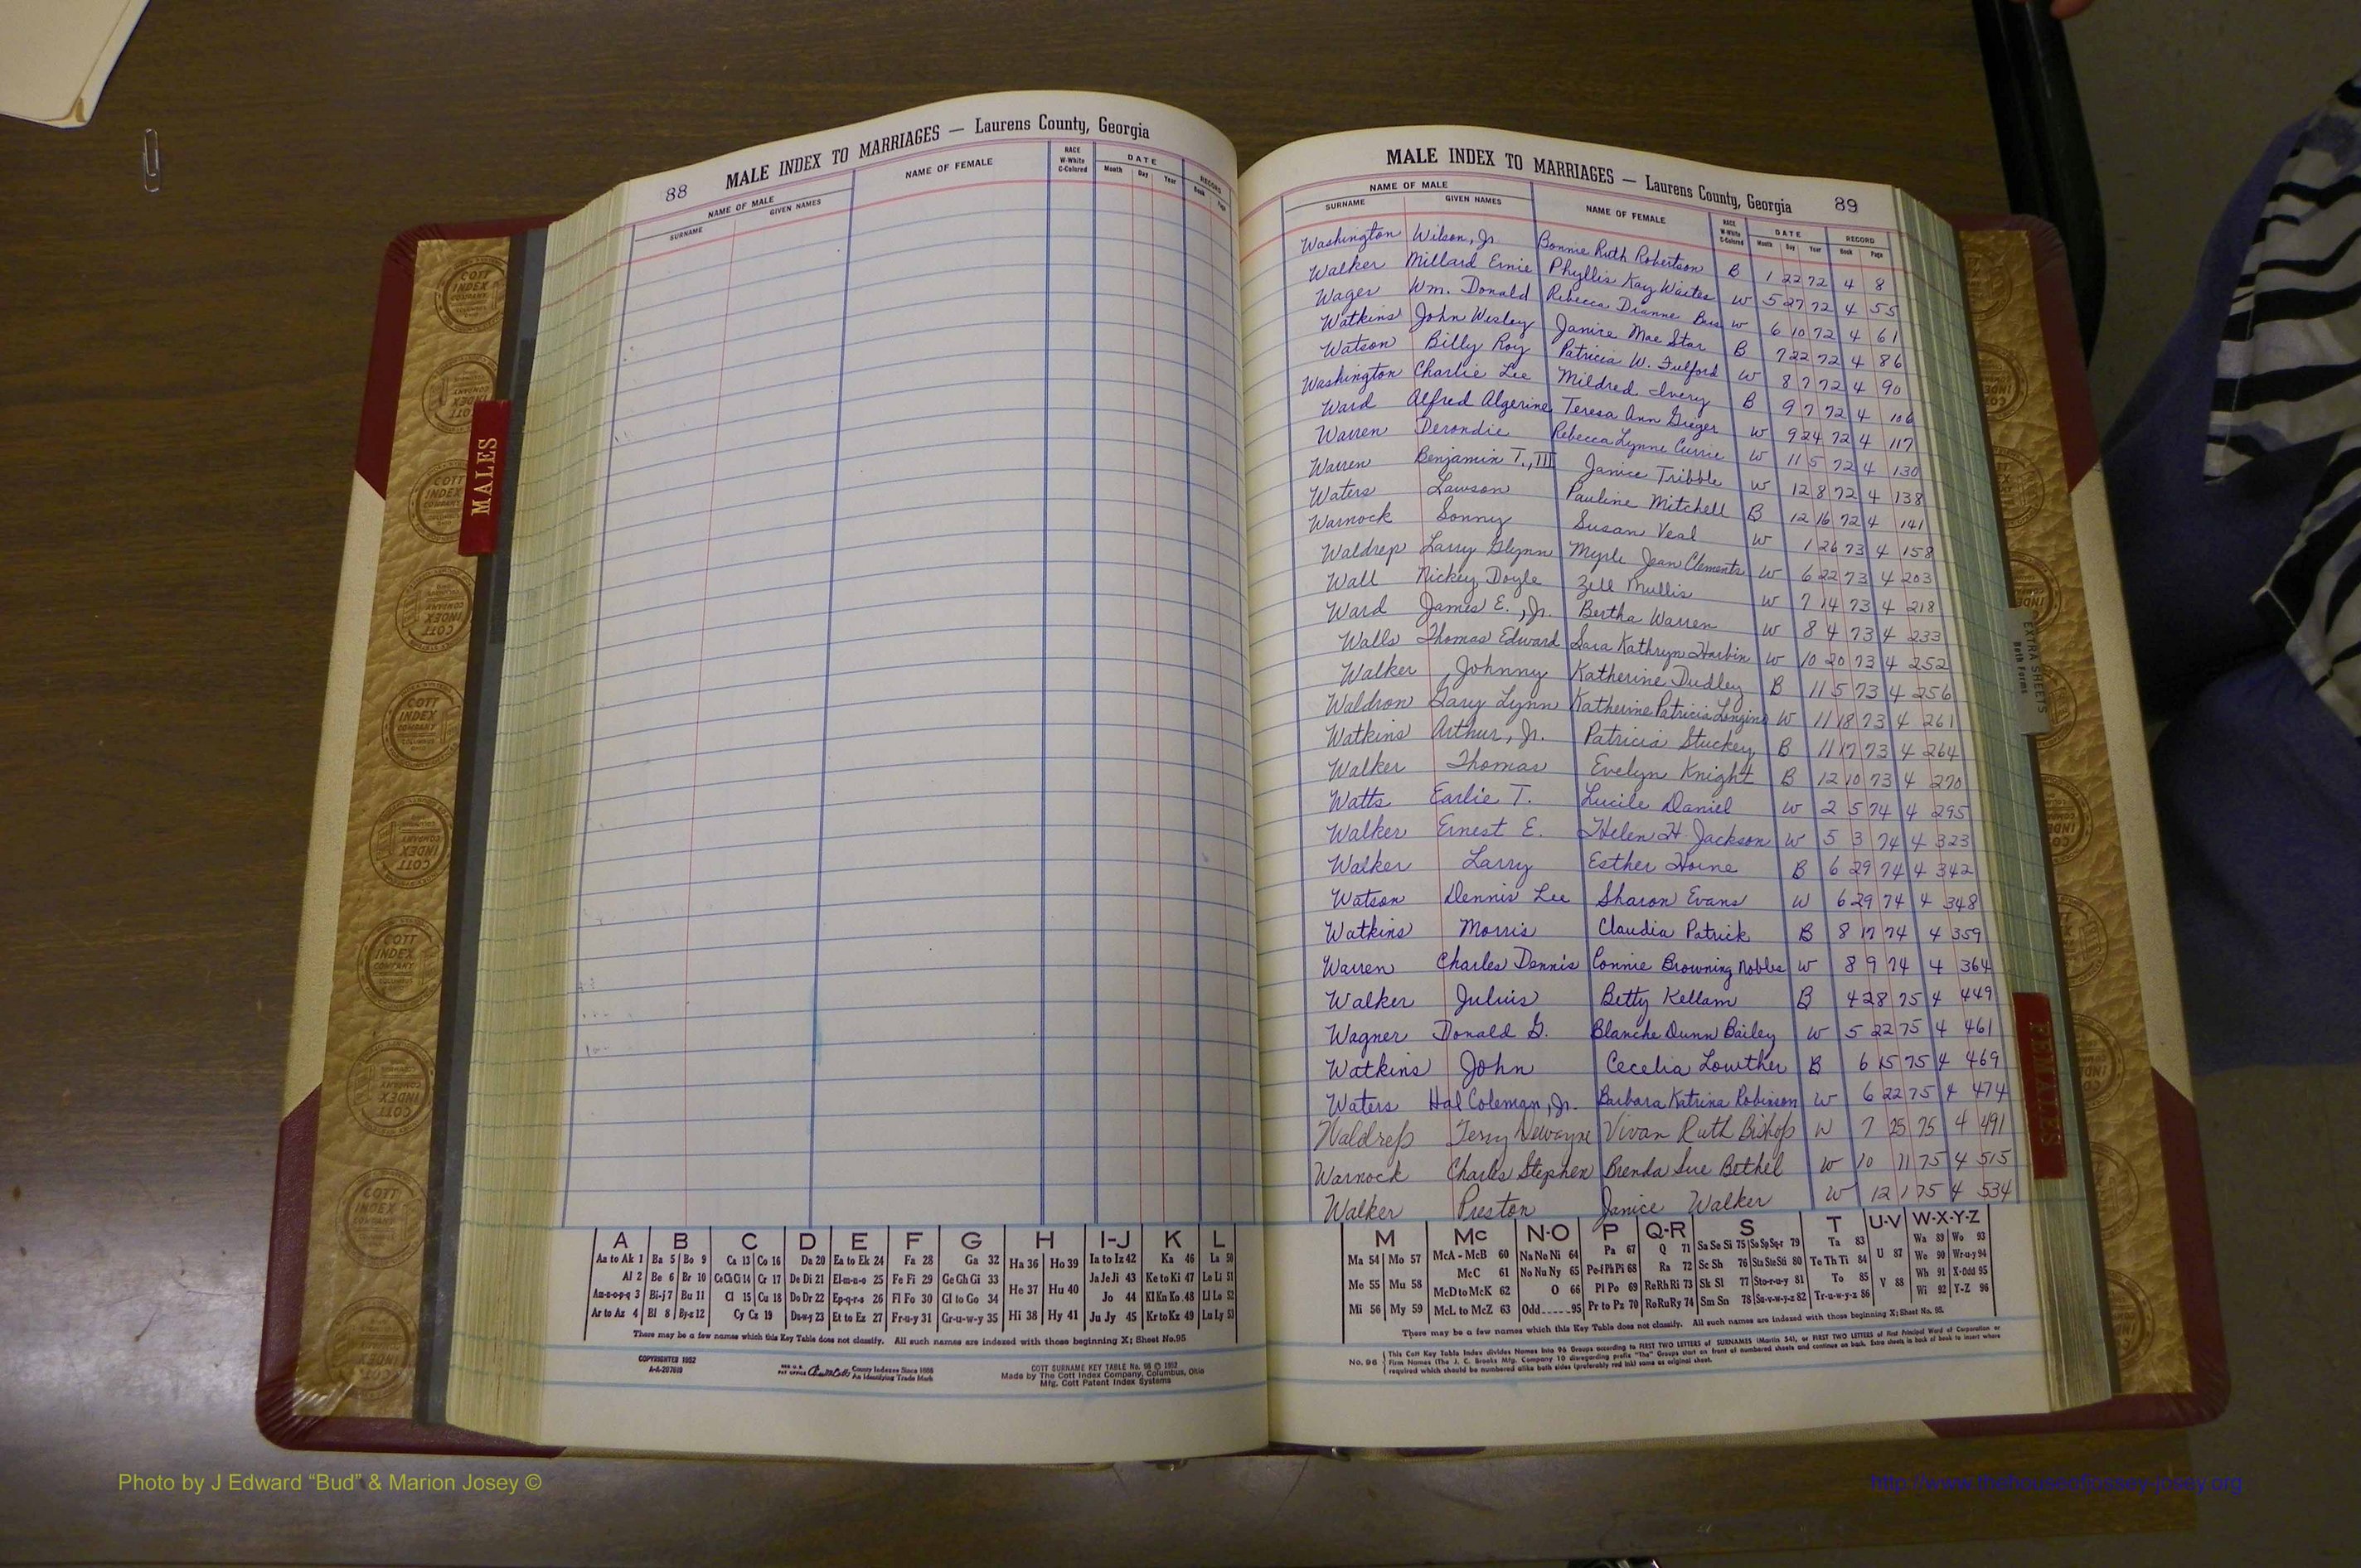 88 MALE INDEX TO MARRIAGES — Laurens County, Georgia
NAME OF MALE NAME OF FEMALE RACE W-White C-Colored DATE RECORD
SURNAME GIVEN NAMES Month Day Year Book Page
MALES
A B C D E F G H I-J K L
Aa to Ak 1 Ba 5 Bo 9 Ca 13 Co 16 Da 20 Ea to Ek 24 Fa 28 Ga 32 Ha 36 Ho 39 Ia to Iz 42 Ka 46 La 50
Al 2 Be 6 Br 10 Ce Ch Ci 14 Cr 17 De Di 21 El-m-n-o 25 Fe Fi 29 Ge Gh Gi 33 He 37 Hu 40 Ja Je Ji 43 Ke to Ki 47 Le Li 51
Am-n-o-p-q 3 Bi-j 7 Bu 11 Cl 15 Cu 18 Do Dr 22 Ep-q-r-s 26 Fl Fo 30 Gl to Go 34 Jo 44 Kl Kn Ko 48 Ll Lo 52
Ar to Az 4 Bl 8 By-z 12 Cy Cz 19 Du-w-y 23 Et to Ez 27 Fr-u-y 31 Gr-u-w-y 35 Hi 38 Hy 41 Ju Jy 45 Kr to Kz 49 Lu Ly 53
There may be a few names which this Key Table does not classify. All such names are indexed with those beginning X; Sheet No. 95
COPYRIGHTED 1952
County Indexes Since 1888
An Identifying Trade Mark
COTT SURNAME KEY TABLE No. 96 © 1952
Made by The Cott Index Company, Columbus, Ohio
Mfg. Cott Patent Index Systems
MALE INDEX TO MARRIAGES — Laurens County, Georgia 89
NAME OF MALE NAME OF FEMALE RACE W-White C-Colored DATE RECORD
SURNAME GIVEN NAMES Month Day Year Book Page
Washington Wilson, Jr. Bonnie Ruth Robertson B 1 22 72 4 8
Walker Millard Ernie Phyllis Kay Waites W 5 27 72 4 55
Wager Wm. Donald Rebecca Dianne W 6 10 72 4 61
Watkins John Wesley Janice Mae Star B 7 22 72 4 86
Watson Billy Roy Patricia W. Fulford W 8 7 72 4 90
Washington Charlie Lee Mildred Ivery B 9 7 72 4 106
Ward Alfred Algerine Teresa Ann Greger W 9 24 72 4 117
Warren Derondie Rebecca Lynne Currie W 11 5 72 4 130
Warren Benjamin T., III Janice Tribble W 12 8 72 4 138
Waters Lawson Pauline Mitchell B 12 16 72 4 141
Warnock Sonny Susan Veal W 1 26 73 4 158
Waldrep Larry Glynn Myrle Jean Clements W 6 22 73 4 203
Wall Rickey Doyle Zell Mullis W 7 14 73 4 218
Ward James E., Jr. Bertha Warren W 8 4 73 4 233
Walls Thomas Edward Sara Kathryn Harbin W 10 20 73 4 252
Walker Johnny Katherine Dudley B 11 5 73 4 256
Waldron Gary Lynn Katherine Patricia Longino W 11 18 73 4 261
Watkins Arthur, Jr. Patricia Stuckey B 11 17 73 4 264
Walker Thomas Evelyn Knight B 12 10 73 4 270
Watts Earlie T. Lucile Daniel W 2 5 74 4 295
Walker Ernest E. Helen H. Jackson W 5 3 74 4 323
Walker Larry Esther Horne B 6 29 74 4 342
Watson Dennis Lee Sharon Evans W 6 29 74 4 348
Watkins Morris Claudia Patrick B 8 17 74 4 359
Warren Charles Dennis Connie Browning Nobles W 8 9 74 4 364
Walker Julius Betty Kellam B 4 28 75 4 449
Wagner Donald G. Blanche Dunn Bailey W 5 22 75 4 461
Watkins John Cecelia Lowther B 6 15 75 4 469
Waters Hal Coleman, Jr. Barbara Katrina Robinson W 6 22 75 4 474
Waldrep Terry Dewayne Vivan Ruth Bishop W 7 25 75 4 491
Warnock Charles Stephen Brenda Sue Bethel W 10 11 75 4 515
Walker Preston Janice Walker W 12 1 75 4 534
M Mc N-O P Q-R S T U-V W-X-Y-Z
Ma 54 Mo 57 McA - McB 60 Na Ne Ni 64 Pa 67 Q 71 Sa Se Si 75 So Sp Sq-r 79 Ta 83 U 87 Wa 89 Wo 93
Me 55 Mu 58 McC 61 No Nu Ny 65 Pe-f Ph Pi 68 Ra 72 Sc Sh 76 Sta Ste Sti 80 Te Th Ti 84 We 90 Wr-u-y 94
McD to McK 62 O 66 Pl Po 69 Re Rh Ri 73 Sk Sl 77 Sto-r-u-y 81 To 85 V 88 Wh 91 X-Odd 95
Mi 56 My 59 McL to McZ 63 Odd 95 Pr to Pz 70 Ro Ru Ry 74 Sm Sn 78 Su-v-w-y-z 82 Tr-u-w-y-z 86 Wi 92 Y-Z 96
There may be a few names which this Key Table does not classify. All such names are indexed with those beginning X; Sheet No. 95.
No. 96 This Cott Key Table Index divides Names into 96 Groups according to FIRST TWO LETTERS of SURNAMES (Martin 54), or FIRST TWO LETTERS of First Principal Word of Corporation or
Firm Names (The J. C. Brooks Mfg. Company 10 disregarding prefix "The" Groups start on front of numbered sheets and continue on back. Extra sheets in back of book to insert where
required which should be numbered alike both sides (preferably red ink) same as original sheet.
EXTRA SHEETS
Both Forms
FEMALES
COTT INDEX COMPANY
Photo by J Edward “Bud” & Marion Josey ©
http://www.thehouseofjossey-josey.org